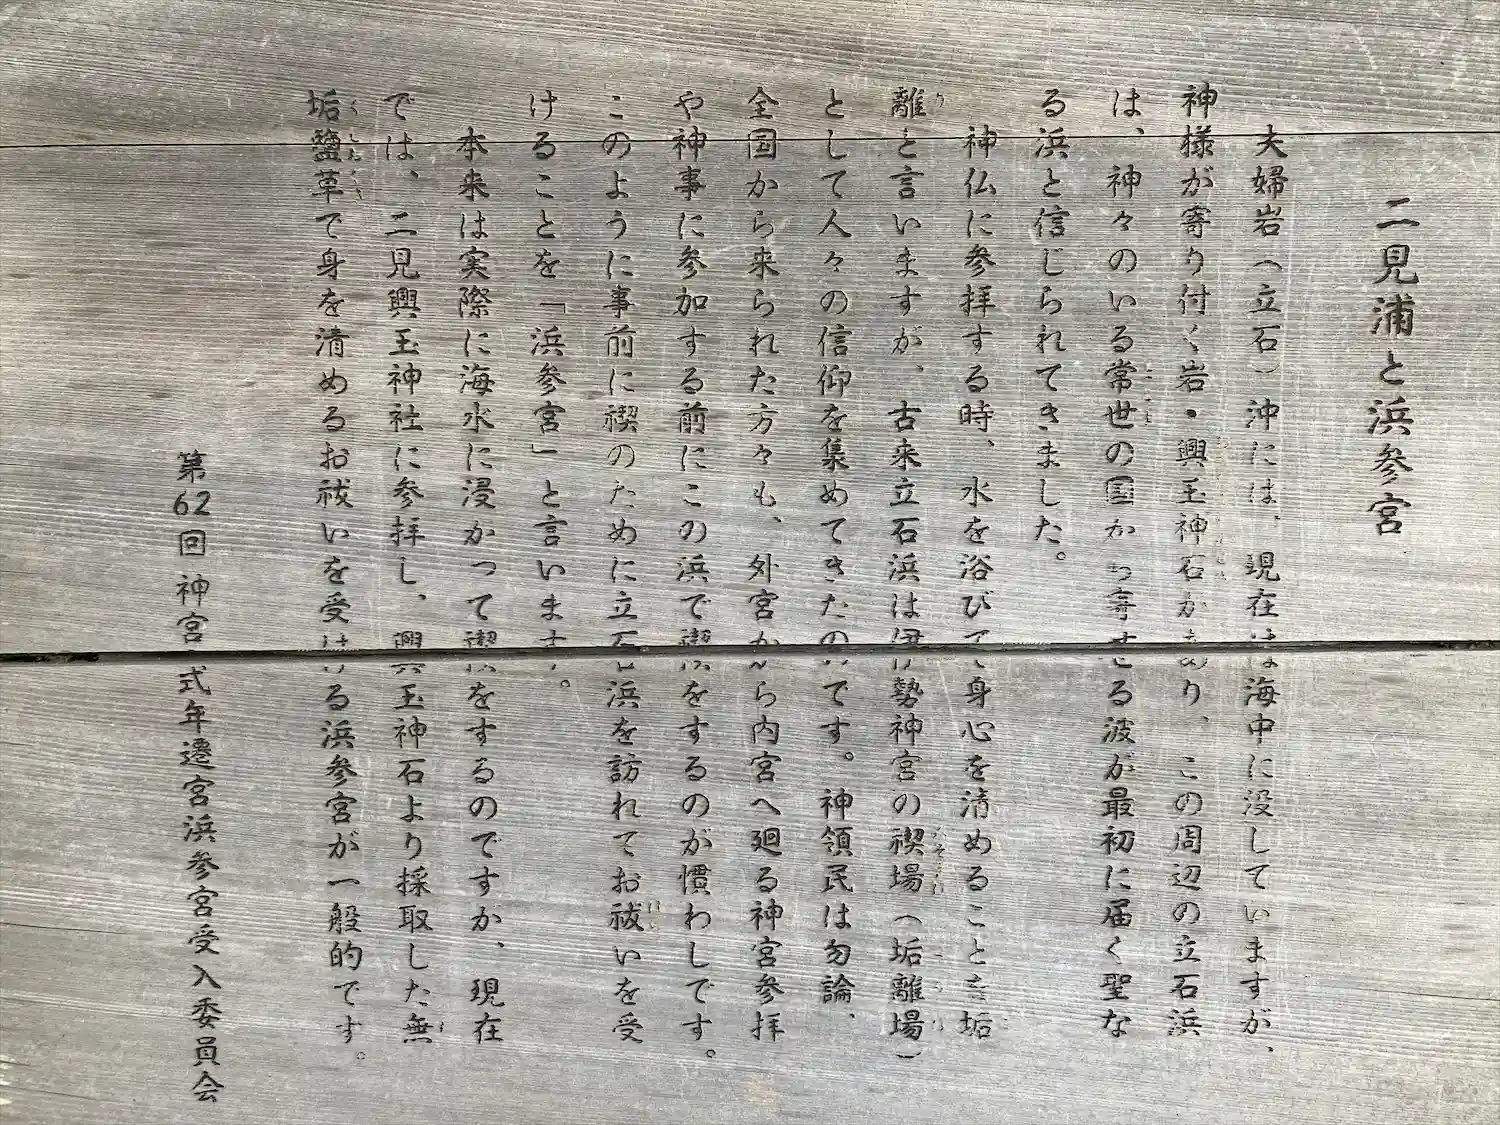 二見浦と浜参宮
夫婦岩（立石）沖には、現在は海中に没していますが、
神様が寄り付く岩・興玉神石があり、この周辺の立石浜
は、神々のいる常世の国から寄せる波が最初に届く聖な
る浜と信じられてきました。
神仏に参拝する時、水を浴びて身心を清めることを垢
離と言いますが、古来立石浜は伊勢神宮の禊場（垢離場）
として人々の信仰を集めてきたのです。神領民は勿論、
全国から来られた方々も、外宮から内宮へ廻る神宮参拝
や神事に参加する前にこの浜で禊をするのが慣わしです。
このように事前に禊のために立石浜を訪れてお祓いを受
けることを「浜参宮」と言います。
本来は実際に海水に浸かって禊をするのですが、現在
では、二見興玉神社に参拝し、興玉神石より採取した無
垢鹽草で身を清めるお祓いを受ける浜参宮が一般的です。
第62回 神宮式年遷宮浜参宮受入委員会